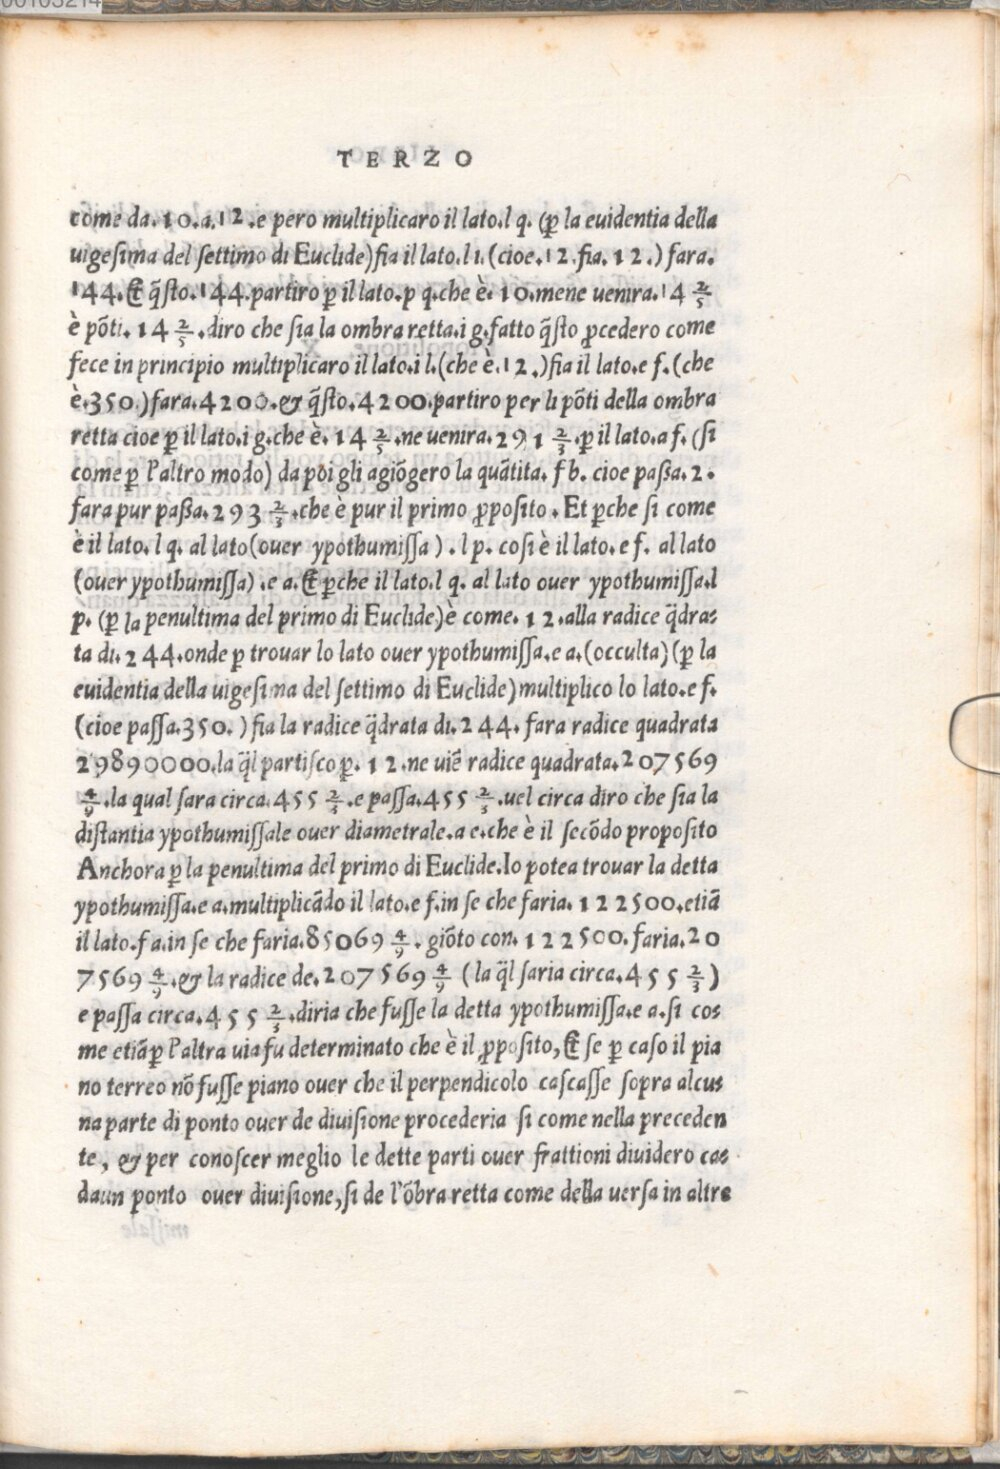 00105214
TERZO
come da.10.a.12.e pero multiplicaro il lato.l q. (ꝑ la euidentia della
uigesima del settimo di Euclide)fia il lato.l i.(cioe.12.fia.12.)fara.
144.Et q̃sto.144.partiro ꝑ il lato.p q.che è.10.mene uenira.14 2/5
è põti.14 2/5.diro che sia la ombra retta.i g.fatto q̃sto ꝓcedero come
fece in principio multiplicaro il lato.i l.(che è.12.)fia il lato.e f.(che
è.350.)fara.4200.& q̃sto.4200.partiro per li põti della ombra
retta cioe ꝑ il lato.i g.che è.14 2/5.ne uenira.291 2/3.ꝑ il lato.a f.(si
come ꝑ l'altro modo) da poi gli agiõgero la quãtita. f b. cioe paßa.2.
fara pur paßa.293 2/3.che è pur il primo ꝓposito. Et ꝑche si come
è il lato.l q. al lato(ouer ypothumissa).l p. cosi è il lato.e f. al lato
(ouer ypothumissa).e a.Et ꝑche il lato.l q. al lato ouer ypothumissa.l
p. (ꝑ la penultima del primo di Euclide)è come.12.alla radice q̃dra-
ta di.244.onde ꝑ trouar lo lato ouer ypothumissa.e a.(occulta)(ꝑ la
euidentia della uigesima del settimo di Euclide)multiplico lo lato.e f.
(cioe passa.350.)fia la radice q̃drata di.244. fara radice quadrata
29890000.la q̃l partisco ꝑ.12.ne uiẽ radice quadrata.207569
4/9.la qual sara circa.455 2/3.e passa.455 2/3.uel circa diro che sia la
distantia ypothumissale ouer diametrale.a e.che è il secõdo proposito
Anchora ꝑ la penultima del primo di Euclide.Io potea trouar la detta
ypothumissa.e a.multiplicãdo il lato.e f.in se che faria.122500.etiã
il lato.f a.in se che faria.85069 4/9. giõto con.122500.faria.20
7569 4/9.& la radice de.207569 4/9 (la q̃l saria circa.455 2/3)
e passa circa.455 2/3.diria che fusse la detta ypothumissa.e a.si co-
me etiã ꝑ l'altra uia fu determinato che è il ꝓposito,Et se ꝑ caso il pia
no terreo nõ fusse piano ouer che il perpendicolo cascasse sopra alcu-
na parte di ponto ouer de diuisione procederia si come nella preceden
te, & per conoscer meglio le dette parti ouer frattioni diuidero ca-
daun ponto ouer diuisione,si de l'õbra retta come della uersa in altre